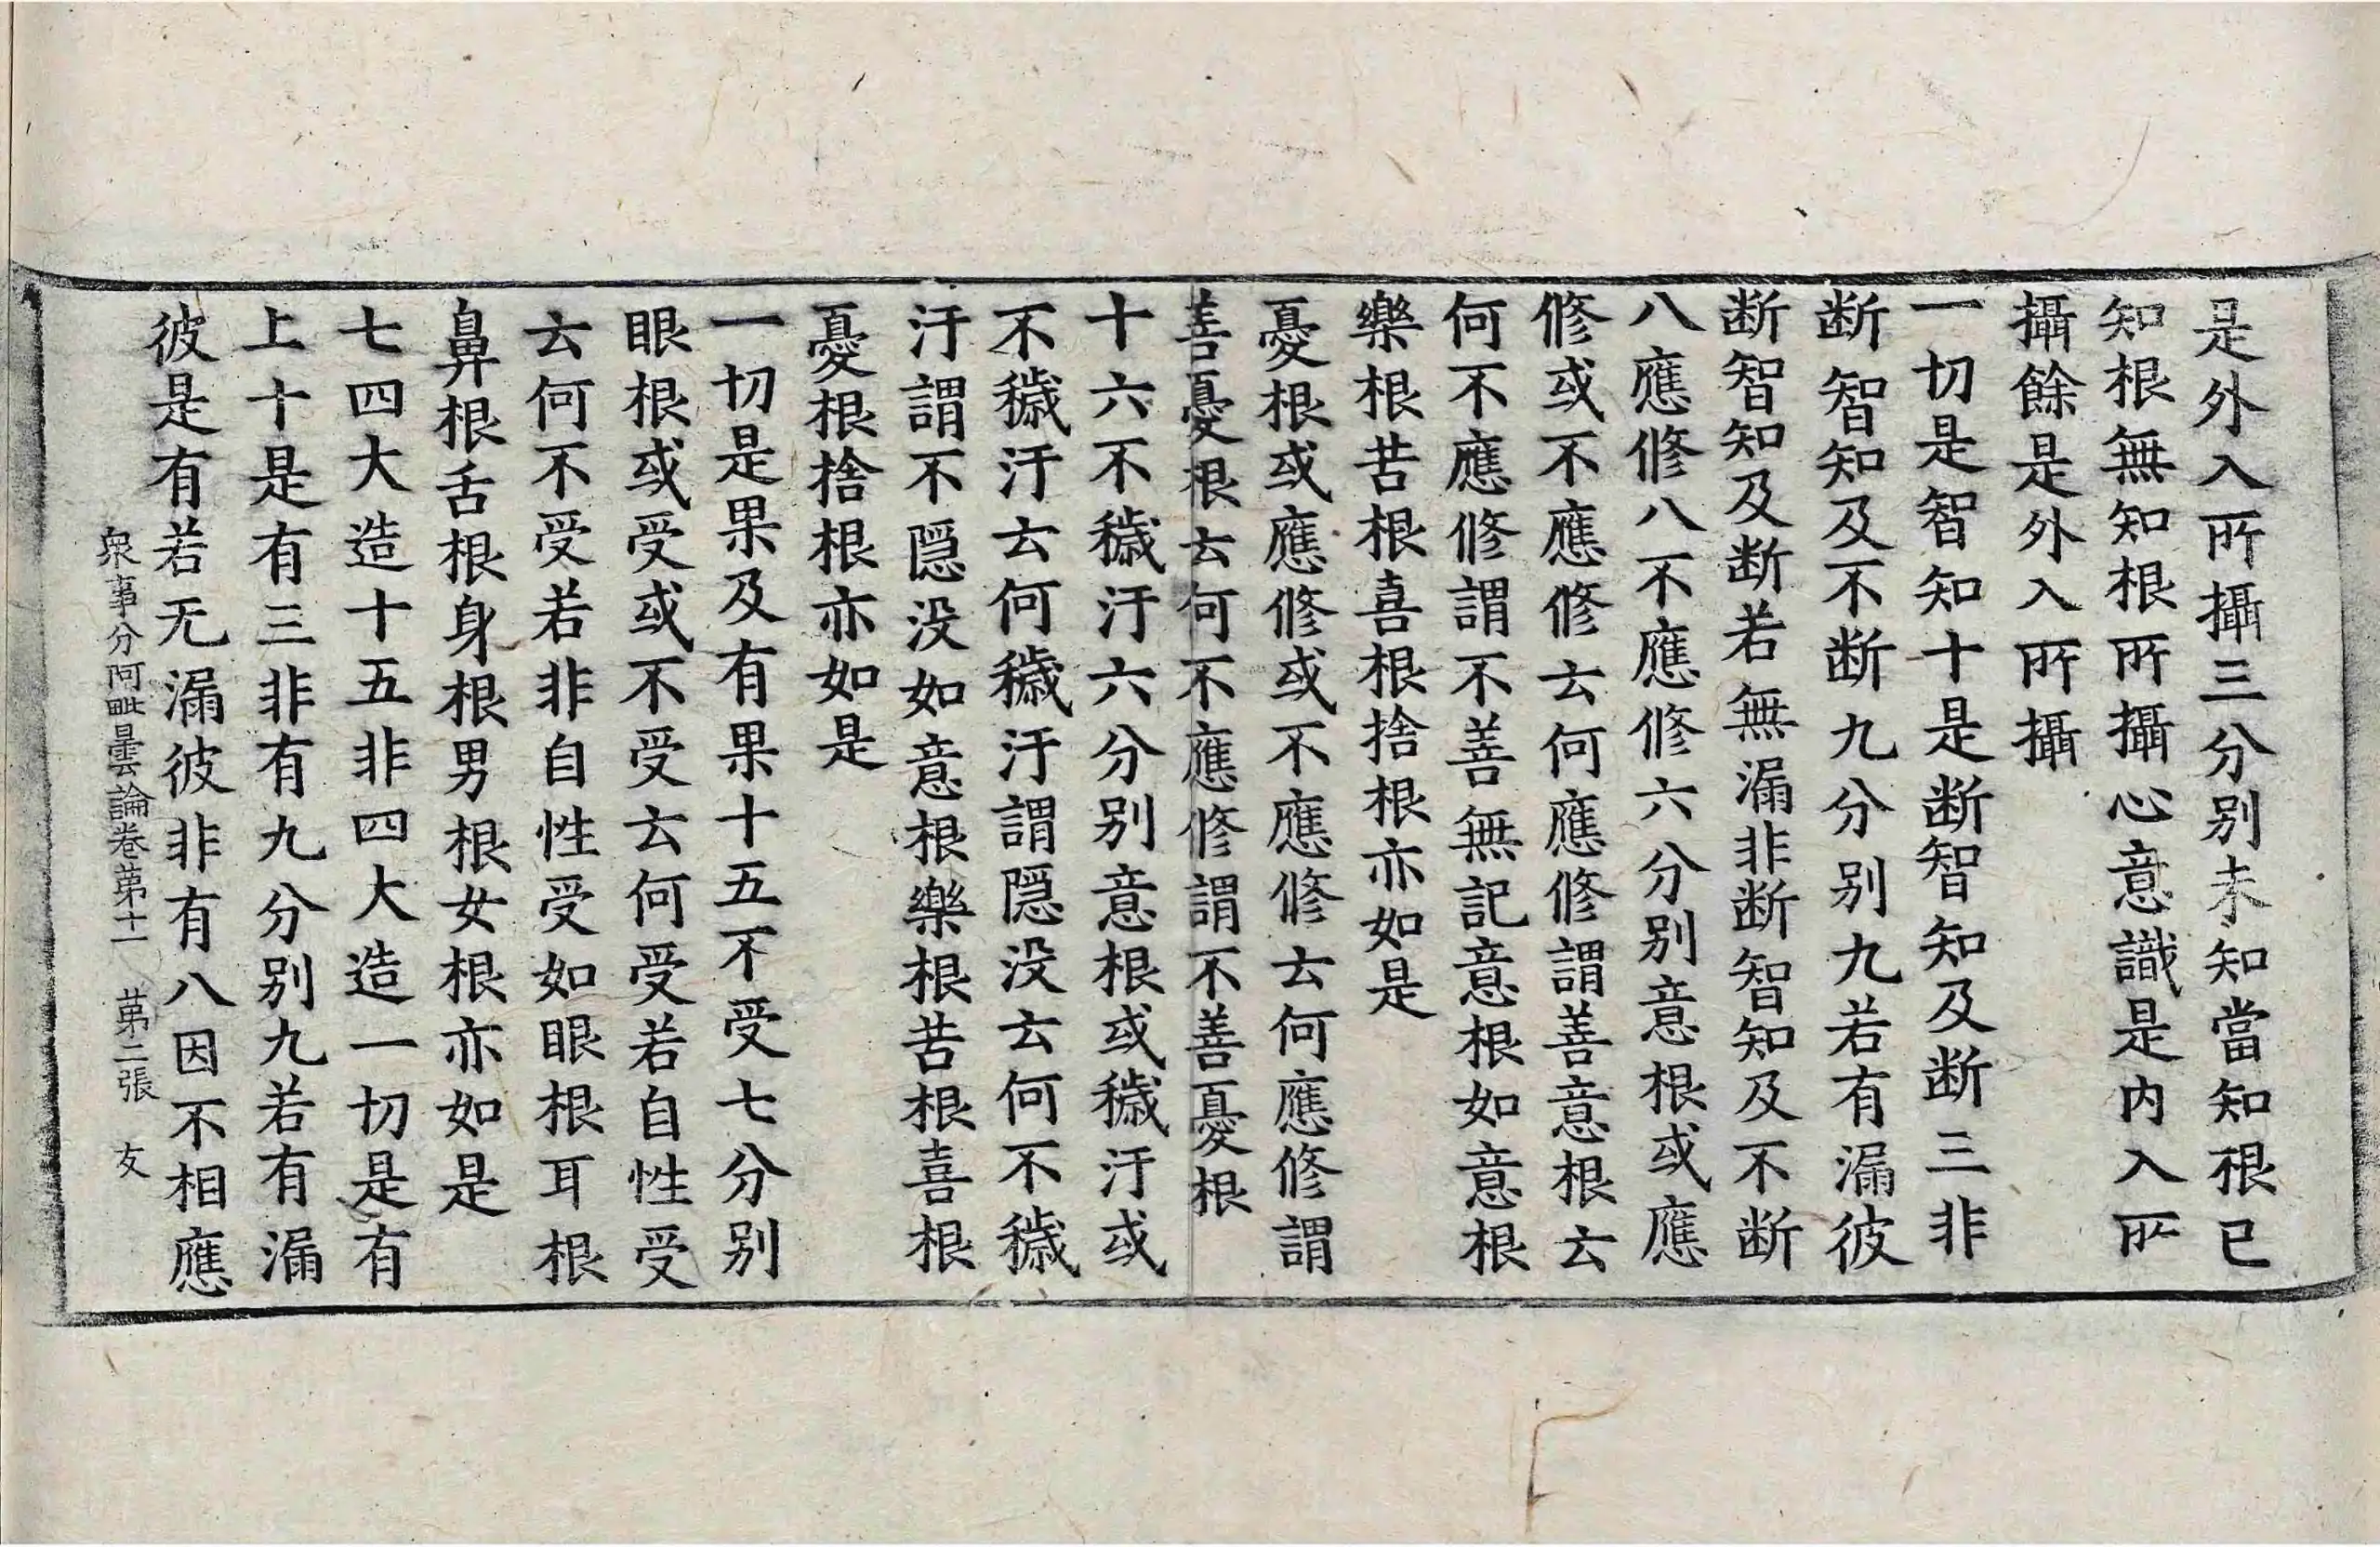 是外入所攝三分別未知當知根已
知根無知根所攝心意識是内入所
攝餘是外入所攝
一切是智知十是断智知及断三非
断智知及不断九分別九若有漏彼
断智知及断若無漏非断智知及不断
八應修八不應修六分別意根或應
修或不應修云何應修謂善意根云
何不應修謂不善無記意根如意根
樂根苦根喜根捨根亦如是
憂根或應修或不應修云何應修謂
善憂根云何不應修謂不善憂根
十六不穢汙六分別意根或穢汙或
不穢汙云何穢汙謂隱没云何不穢
汙謂不隱没如意根樂根苦根喜根
憂根捨根亦如是
一切是果及有果十五不受七分別
眼根或受或不受云何受若自性受
云何不受若非自性受如眼根耳根
鼻根舌根身根男根女根亦如是
七四大造十五非四大造一切是有
上十是有三非有九分別九若有漏
彼是有若无漏彼非有八因不相應
衆事分阿毗曇論卷第十一　第二張　友